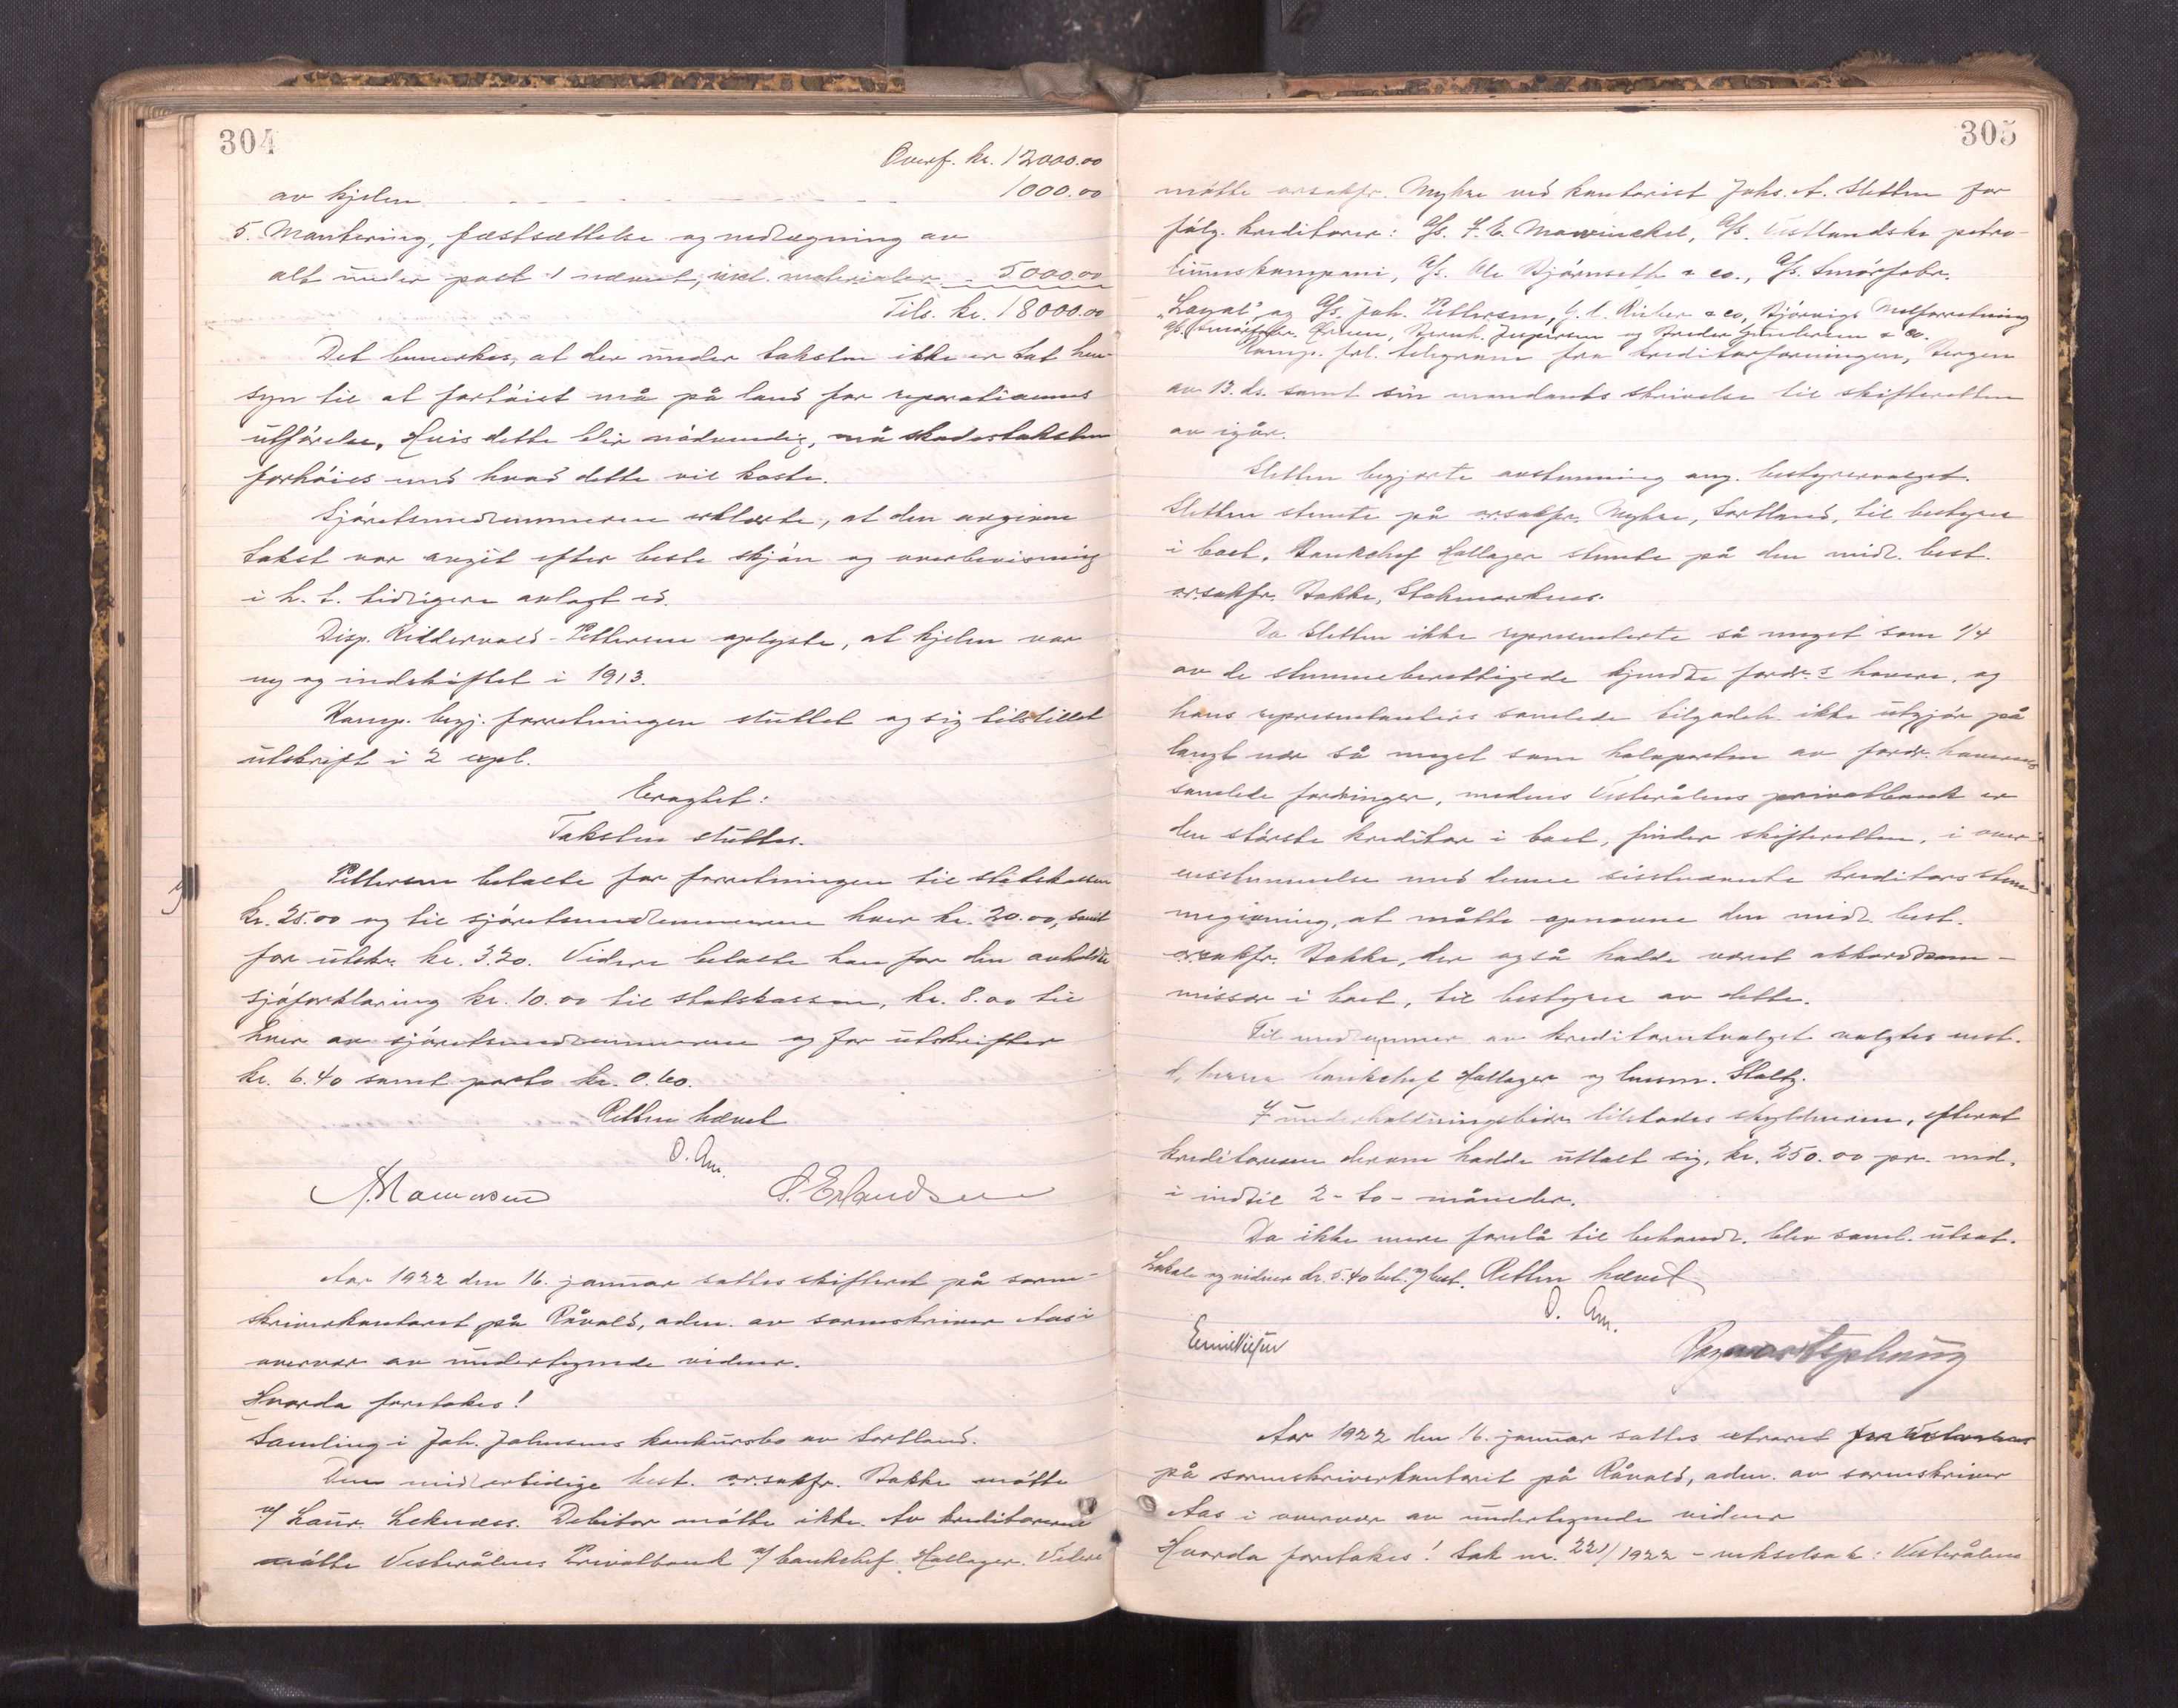 304
Overf. kr. 12000.00
av kjelen 1000.00
5. Montering, fæstsættelse og nedlægning av
alt under post 1 nævnt, inkl. materialer 5000.00
Tils. kr. 18000.00
Det bemerkes, at der under taksten ikke er tat hen-
syn til at fartøiet må på land for reparationens
utførelse. Hvis dette blir nødvendig, må skadestaksten
forhøies med hvad dette vil koste.
Sjøretsmedlemmerne erklærte, at den avgivne
takst var avgit efter beste skjøn og overbevisning
i h. t. tidligere avlagt ed.
Disp. Riddervold-Pettersen oplyste, at kjelen var
ny og indskiftet i 1913.
Komp. begj. forretningen sluttet og sig tilstillet
utskrift i 2 expl.
Eragtet:
Taksten sluttes.
Pettersen betalte for forretningen til statskassen
kr. 25.00 og til sjøretsmedlemmerne hver kr. 20.00, samt
for utskr. kr. 3.20. Videre betalte han for den avholdte
sjøforklaring kr. 10.00 til statskassen, kr. 8.00 til
hver av sjøretsmedlemmerne og for utskrifter
kr. 6.40 samt porto kr. 0.60.
Retten hævet
O. Aas.
P. Erlandsen
Aar 1922 den 16. januar sattes skifteret på soren-
skriverkontoret på Råvald, adm. av sorenskriver Aas i
overvær av undertegnede vidner.
Hvorda foretokes!
Samling i Joh. Johnsens konkursbo av Sortland.
Den midlertidige best. o.r.sakfr. Bakke møtte
v/ Laur. Leknæs. Debitor møtte ikke. Av kreditorerne
møtte Vesterålens Privatbank v/ banksjef Hallager. Videre
305
møtte o.r.sakfr. Myhre ved kontorist Johs. A. Sletten for
følg. kreditorer: A/S. F. E. Mowinckel, A/S. Vestlandske petro-
leumskompani, A/S. Ole Bjørnseth & co., A/S. Smørfabr.
"Loyal", og A/S. Joh. Pettersen, G. C. Rieber & co, Bjørsvigs Melforretning
A/S. Smørfabr. Ørnen, Bernh. Jespersen og Brødr. Gundersen & co.
Komp. frl. telegram fra kreditorforeningen, Bergen
av 13. ds. samt sin mandants skrivelse til skifteretten
av igår.
Sletten begjærte avstemning ang. bestyrervalget.
Sletten stemte på o.r.sakfr. Myhre, Sortland, til bestyrer
i boet. Banksjef Hallager stemte på den midl. best.
o.r.sakfr. Bakke, Stokmarknes.
Da Sletten ikke representerte så meget som 1/4
av de stemmeberettigede kjendte fordr.s havere, og
hans representanters samlede tilgodeh. ikke utgjør på
langt nær så meget som halvparten av fordr.havernes
samlede fordringer, medens Vesterålens privatbank er
den største kreditor i boet, finder skifteretten, i over-
ensstemmelse med denne sisstnævnte kreditors stem-
megivning, at måtte opnævne den midl. best.
o.r.sakfr. Bakke, der også hadde været akkordkom-
missær i boet, til bestyrer av dette.
Til medlemmer av kreditorutvalget valgtes enst.
d'herrer banksjef Hallager og lensm. Stoltz.
I underholdningsbidr. tilstodes skyldneren, efterat
kreditorerne derom hadde uttalt sig, kr. 250.00 pr. md.
i indtil 2 - to - måneder.
Da ikke mere forelå til behandl. blev saml. utsat.
Lokale og vidner kr. 5.40 bet. v/ best. Retten hævet
O. Aas.
Aar 1922 den 16. januar sattes extraret
på sorenskriverkontoret på Råvald, adm. av sorenskriver
Aas i overvær av undertegnede vidner
Hvorda foretokes! Sak nr. 221/1922 - vekselsak: Vesterålens